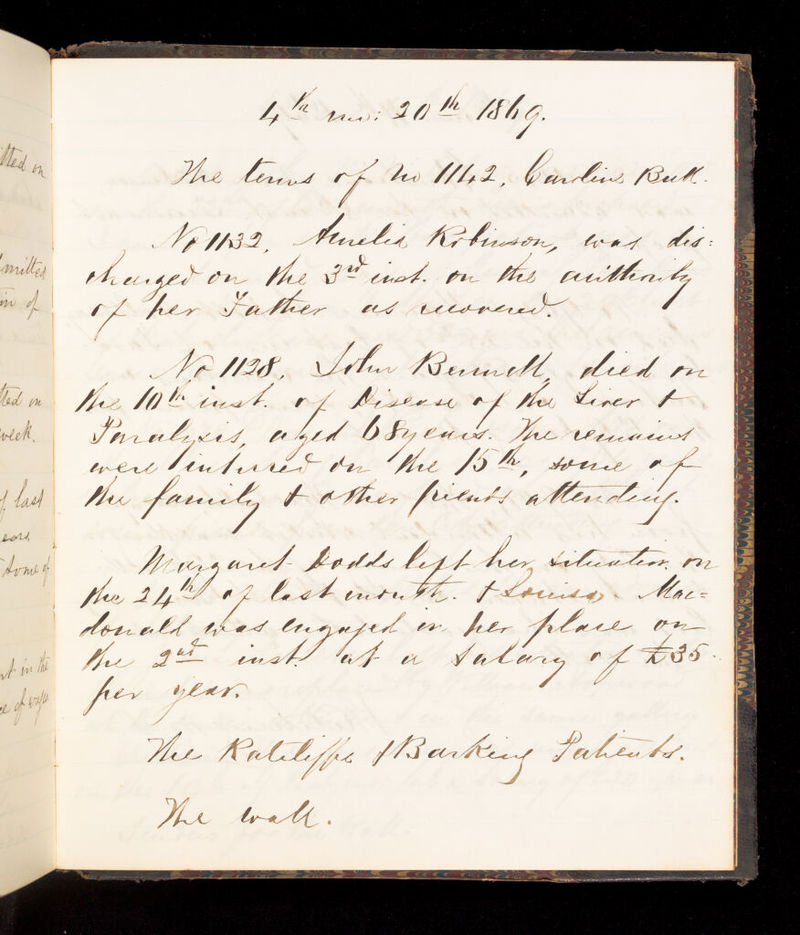 4th mo: 20th 1869.
The terms of No 1142, Caroline Bull.
No 1132, Amelia Robinson, was dis=
charged on the 3rd inst. on the authority
of her Father as recovered.
No 1128, John Bennett, died on
the 10th inst. of Disease of the Liver &
Paralysis, aged 68 years. The remains
were interred on the 15th, some of
the family & other friends attending.
Margaret Dodds left her situation on
the 24th of last month. & Louisa Mac=
donald was engaged in her place on
the 2nd inst. at a salary of £35
per year.
The Ratcliffe & Barking Patients.
The wall.
itted on
mitted
in of
tted on
week.
of last
ears
some of
nt in the